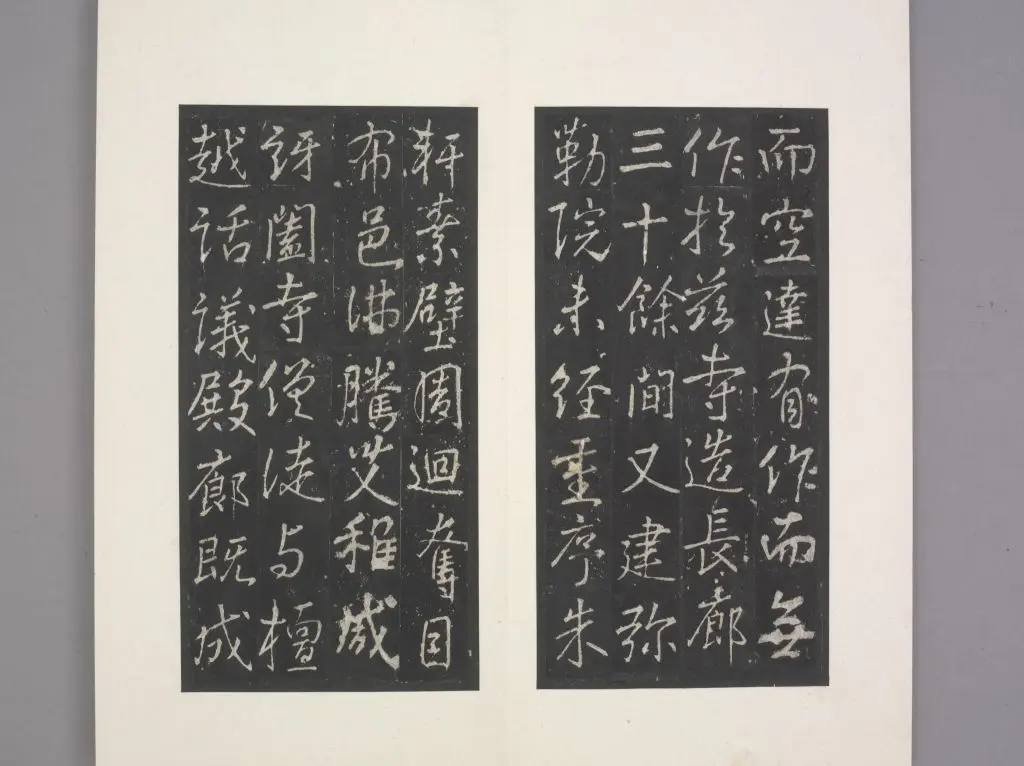 而空達有作而無
作於茲寺造長廊
三十餘間又建弥
勒院未經重序朱
軒素壁周迴奪目
市邑沸騰艾稚咸
訝闔寺僧徒与檀
越話議殿廊既成